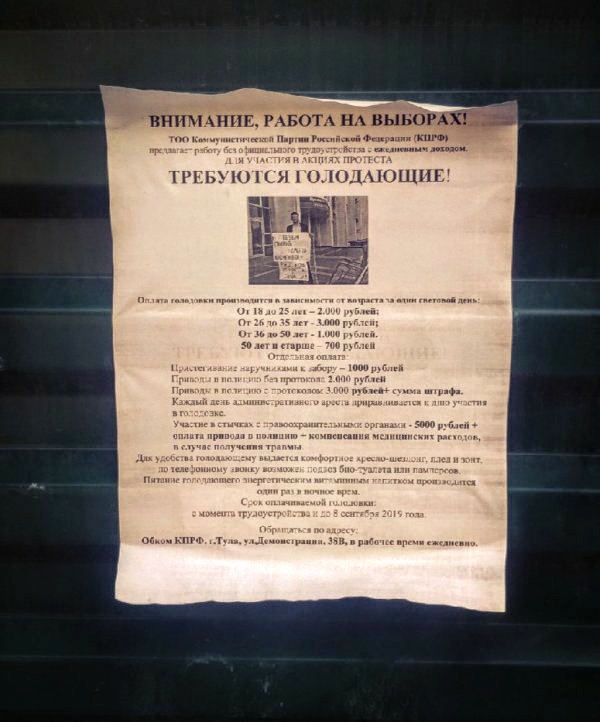 ВНИМАНИЕ, РАБОТА НА ВЫБОРАХ!
ТОО Коммунистической Партии Российской Федерации (КПРФ)
предлагает работу без официального трудоустройства с ежедневным доходом.
ДЛЯ УЧАСТИЯ В АКЦИЯХ ПРОТЕСТА
ТРЕБУЮТСЯ ГОЛОДАЮЩИЕ!
Оплата голодовки производится в зависимости от возраста за один световой день:
От 18 до 25 лет – 2.000 рублей;
От 26 до 35 лет - 3.000 рублей;
От 36 до 50 лет - 1.000 рублей.
50 лет и старше – 700 рублей
Отдельная оплата:
Пристегивание наручниками к забору – 1000 рублей
Приводы в полицию без протокола 2.000 рублей
Приводы в полицию с протоколом 3.000 рублей+ сумма штрафа.
Каждый день административного ареста приравнивается к дню участия
в голодовке.
Участие в стычках с правоохранительными органами - 5000 рублей +
оплата привода в полицию + компенсация медицинских расходов,
в случае получения травмы.
Для удобства голодающему выдается комфортное кресло-шезлонг, плед и зонт,
по телефонному звонку возможен подвоз био-туалета или памперсов.
Питание голодающего энергетическим витаминным напитком производится
один раз в ночное врем.
Срок оплачиваемой голодовки:
с момента трудоустройства и до 8 сентября 2019 года.
Обращаться по адресу:
Обком КПРФ, г.Тула, ул.Демонстрации, 38В, в рабочее время ежедневно.